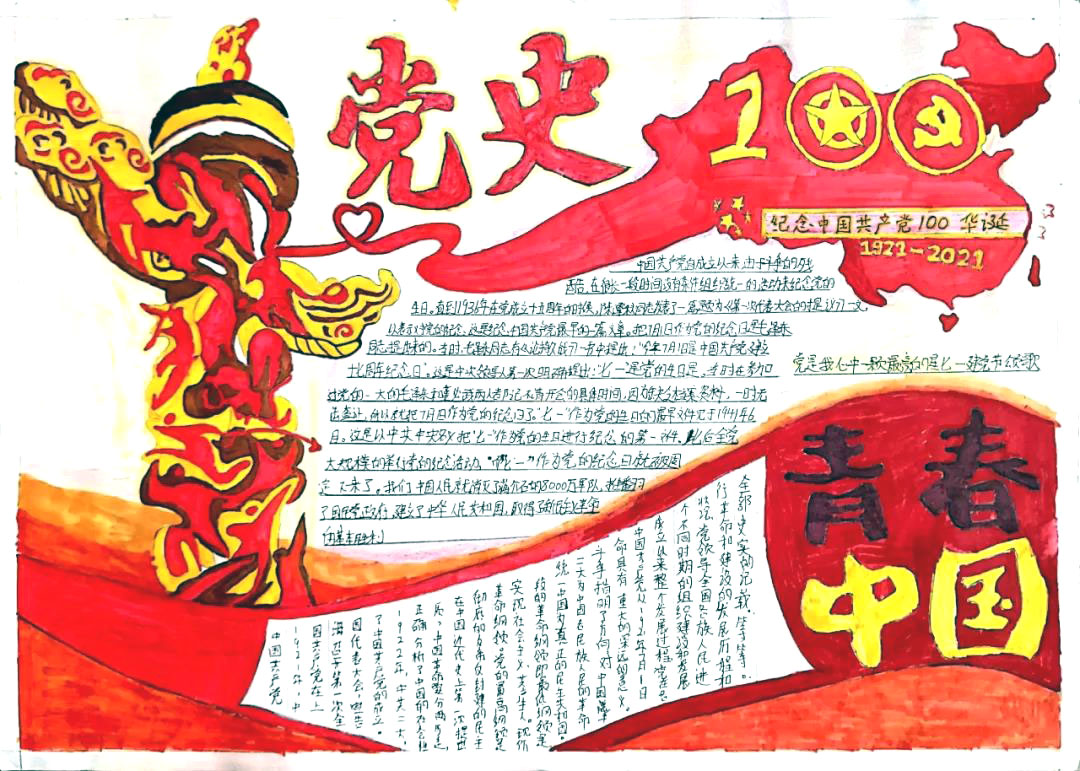 党史
100
纪念中国共产党100华诞
1921-2021
中国共产党自成立以来,由于斗争的残
酷,在很长一段时间没有条件组织统一的活动来纪念党的
生日。直到1936年在党成立十五周年的时候,
以表示对党的纪念。这是纪念中国共产党最早的一篇文章。把7月1日作为党的纪念日是毛泽东
同志提出来的。当时,毛泽东同志在《论持久战》一文中提出:"今年7月1日是中国共产党建立
十七周年纪念日"。这是中央领导人第一次明确提出"七一"是党的生日。当时在参加
过党的一大的毛泽东和董必武两人都记不清开会的具体时间,因为缺乏档案资料,一时无
法查证,所以就把7月1日作为党的纪念日了"七一"作为党的生日的最早文件见于1941年6
月。这是以中共中央名义把"七一"作为党的生日进行纪念的第一次。此后全党
大规模的举行党的纪念活动,"七一"作为党的纪念日就被固
定下来了。我们中国人民就消灭了蒋介石的8000万军队,推翻了
了国民党政府,建立了中华人民共和国,取得了新民主主义革命
的基本胜利。
党是我心中一颗最亮的星七一建党节颂歌
青春
中国
全部史实的记载,等等等。
行革命和建设的发展历程和
状况,党领导全国各族人民进
个不同时期的组织建设和发展
成立以来整个发展过程
中国共产党从1921年7月1日
命具有重大的深远的意义。
斗争指明了方向,对中国革
二大为中国各民族人民的革命
统一中国为真正的民主共和国。
段的革命纲领即最低纲领是
实现社会主义,共产主义,现阶
革命纲领。党的最高纲领是
彻底的反帝反封建的民主
在中国近代史上第一次提出
质,中国革命要分两步走
正确分析了中国的社会性
1922年,中共二大,
了中国共产党的成立。
国代表大会,宣告
海召开第一次全
国共产党在上
1921年,中
中国共产党